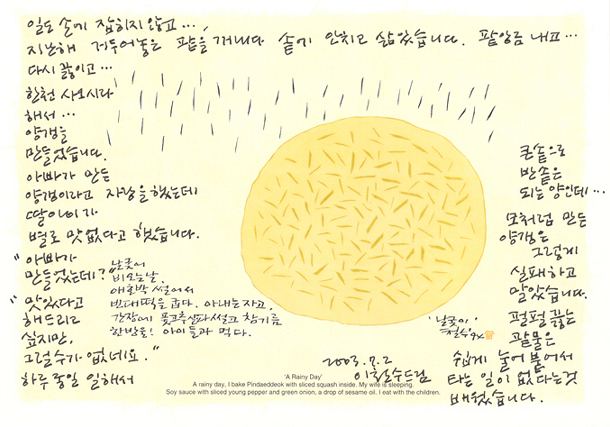 일도 손에 잡히지 않고...,
지난해 거두어놓은 팥을 꺼내다 솥에 안치고 삶았습니다. 팥앙금 내고...
다시 끓이고...
한천 사오시라
해서...
양갱을
만들었습니다.
아빠가 만든
양갱이라고 자랑을 했는데
딸아이가
별로 맛없다고 했습니다.
"아빠가
만들었는데?
"맛있다고
해드리고
싶지만,
그럴수가 없네요."
하루종일 일해서
큰솥으로
반솥은
되는 양인데...
모처럼 만든
양갱은
그렇게
실패하고
말았습니다.
펄펄 끓는
팥물은
쉽게 눌어붙어서
타는 일이 없다는것
배웠습니다.
날궂이
비오는날.
애호박 썰어서
빈대떡을 굽다. 아내는 자고,
간장에 풋고추 실파 썰고 참기름
한방울! 아이들과 먹다.
'날궂이'
철수 94
2003.7.2
이철수드림
'A Rainy Day'
A rainy day, I bake Pindaeddeok with sliced squash inside. My wife is sleeping.
Soy sauce with sliced young pepper and green onion, a drop of sesame oil. I eat with the children.